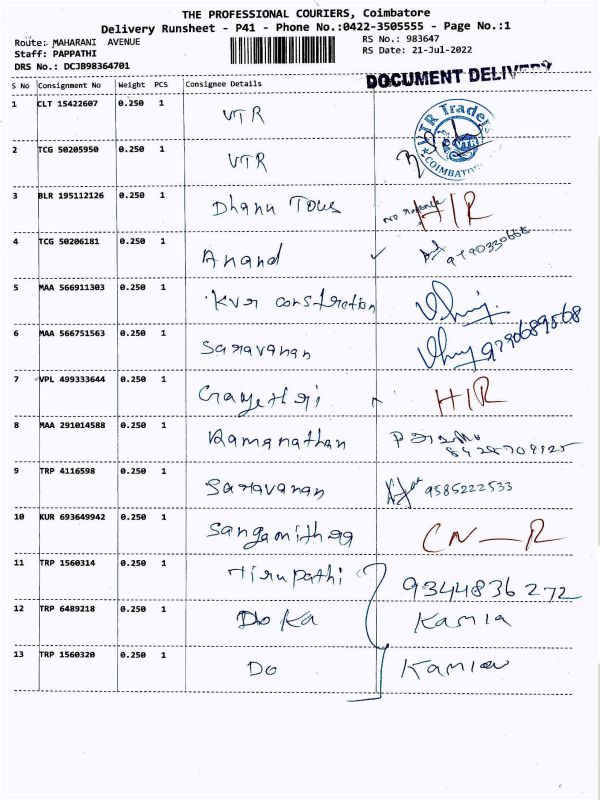 THE PROFESSIONAL COURIERS, Coimbatore
Delivery Runsheet - P41 - Phone No.:0422-3505555 - Page No.:1
Route: MAHARANI AVENUE
RS No.: 983647
Staff: PAPPATHI
RS Date: 21-Jul-2022
DRS No.: DCJB98364701
DOCUMENT DELIVERY
S No Consignment No Weight PCS Consignee Details
1 CLT 15422607 0.250 1 VTR
VTR Traders
VTR
COIMBATORE
2 TCG 50205950 0.250 1 VTR
3 BLR 195112126 0.250 1 Dhanu Tous HIR
4 TCG 50206181 0.250 1 Anand
5 MAA 566911303 0.250 1 Kvr constretion
6 MAA 566751563 0.250 1 Saravanan 9790689568
7 VPL 499333644 0.250 1 Gayethri HIR
8 MAA 291014588 0.250 1 Ramanathan
9 TRP 4116598 0.250 1 Saravanan 9585222533
10 KUR 693649942 0.250 1 Sangamithra CN-R
11 TRP 1560314 0.250 1 Tirupathi 9344836272
12 TRP 6489218 0.250 1 Do Ka Kamla
13 TRP 1560320 0.250 1 Do